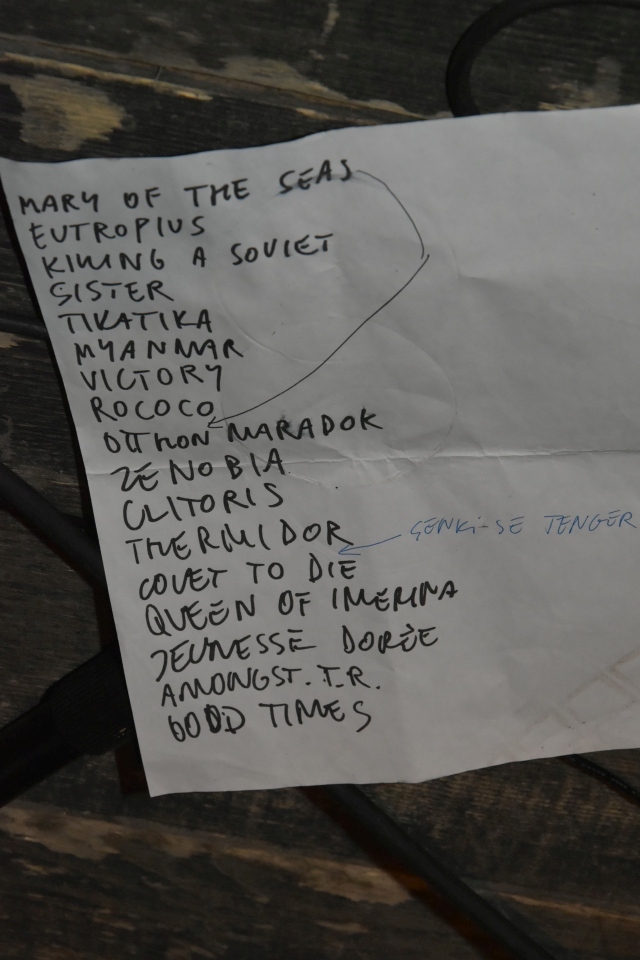 MARY OF THE SEAS
EUTROPIUS
KILLING A SOVIET
SISTER
TIKATIKA
MYANMAR
VICTORY
ROCOCO
OTTHON MARADOK
ZENOBIA
CLITORIS
THERMIDOR
SENKI-SE TENGER
COVET TO DIE
QUEEN OF IMERINA
JEUNESSE DORÈE
AMONGST. T.R.
GOOD TIMES